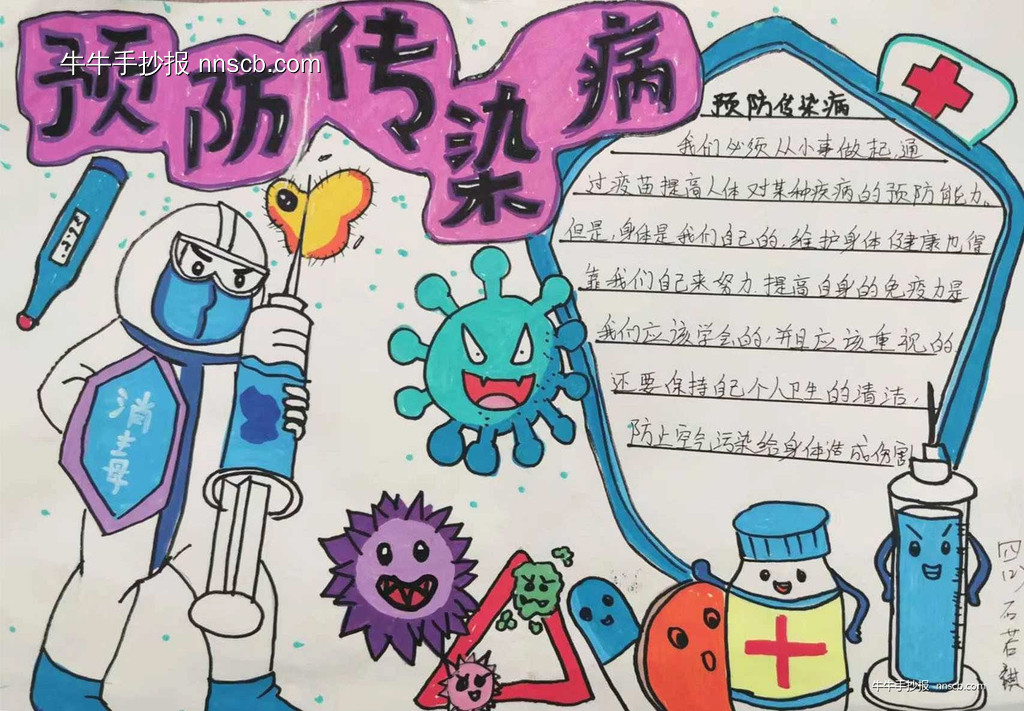 预防传染病
牛牛手抄报 nnscb.com
预防传染病
我们必须从小事做起,通
过疫苗提高人体对某种疾病的预防能力。
但是,身体是我们自己的,维护身体健康也得
靠我们自己来努力.提高自身的免疫力是
我们应该学会的,并且应该重视的
还要保持自己个人卫生的清洁,
防止空气污染给身体造成伤害
消毒
四(2)石若
牛牛手抄报 nnscb.com